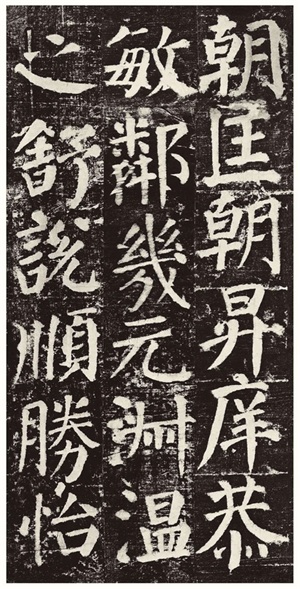 朝匡朝昇庠恭
敏鄰幾元淵溫
之舒說順勝怡